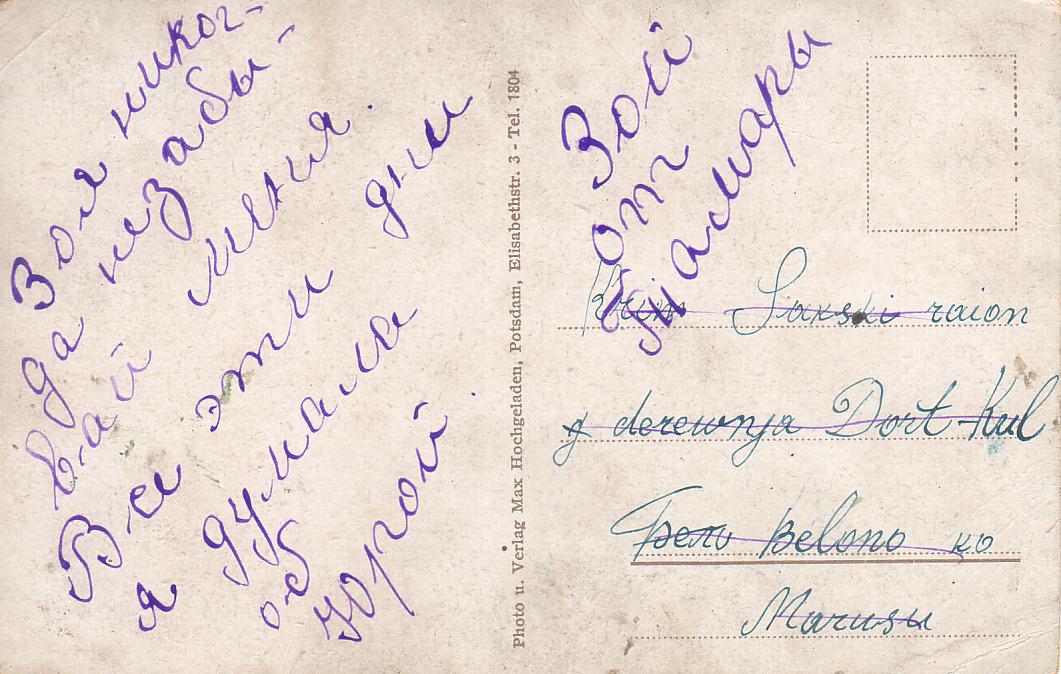 Зоя никог-
да незабы-
вай меня.
Все эти дни
я думала
об
юрой.
Photo u. Verlag Max Hochgeladen, Potsdam, Elisabethstr. 3 - Tel. 1804
Зой
от
Тамары
Krim Sakski raion
derewnja Dort-Kul
Belono ко
Marusu